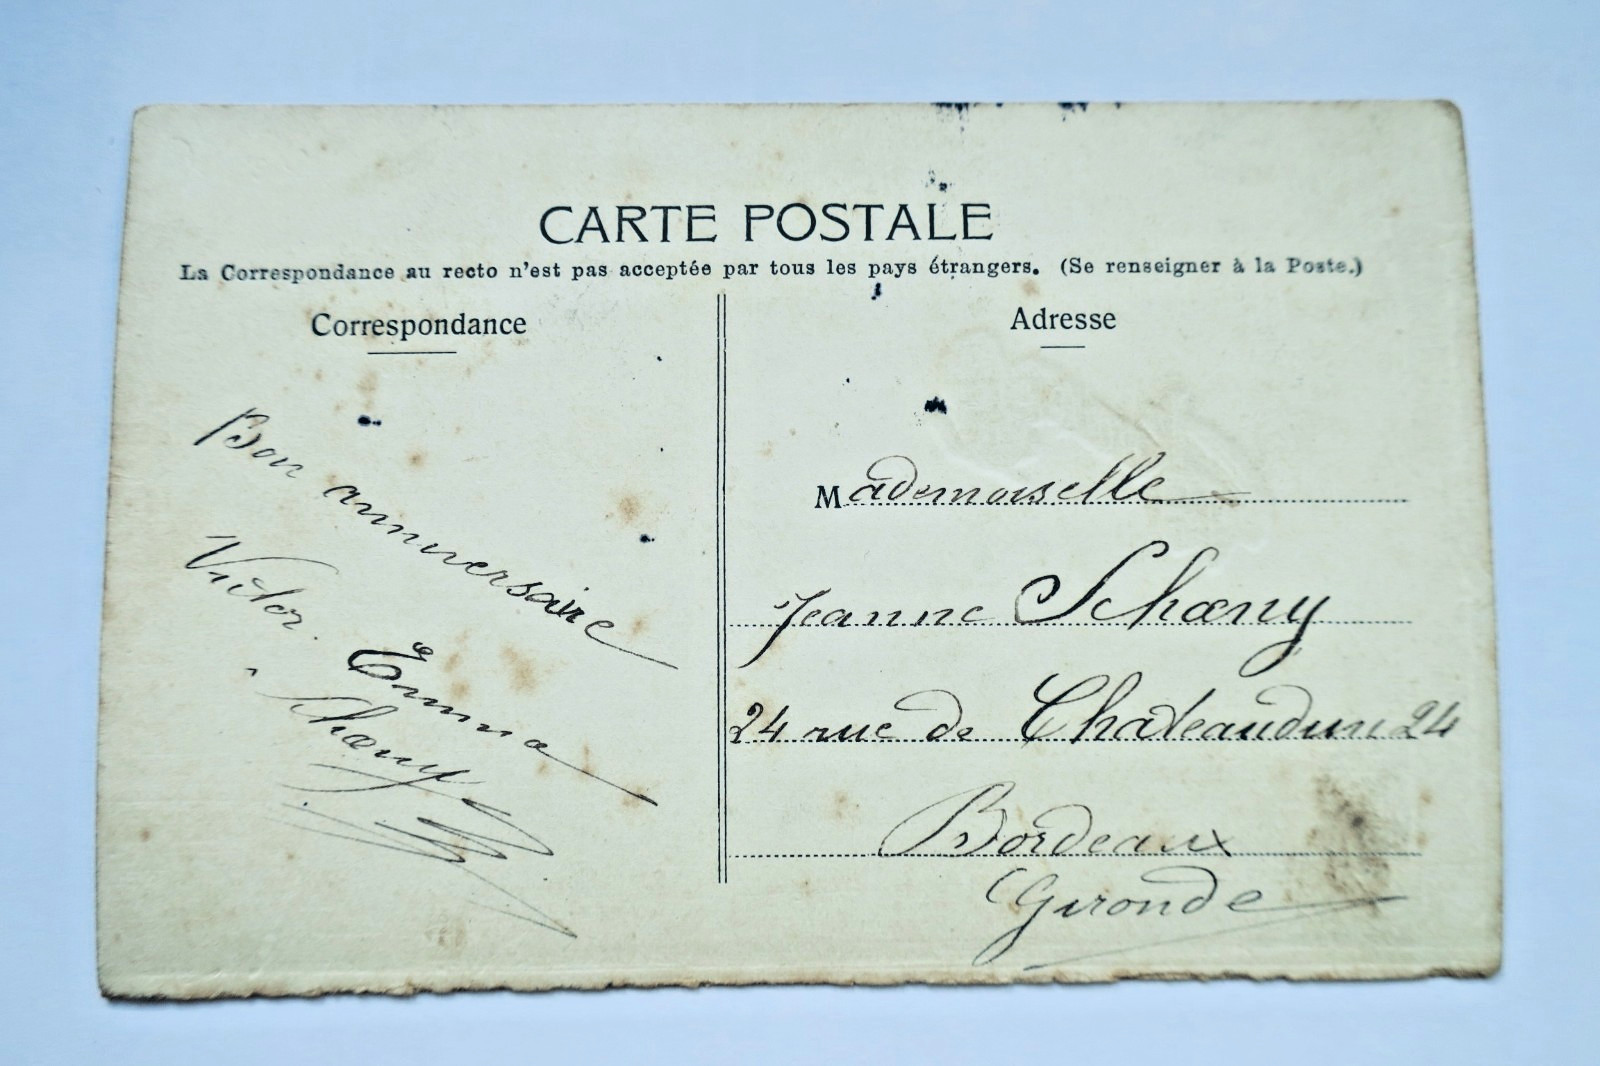 CARTE POSTALE
La Correspondance au recto n'est pas acceptée par tous les pays étrangers. (Se renseigner à la Poste.)
Correspondance
Bon anniversaire
Victor. Emma
Schœny
Adresse
Mademoiselle
Jeanne Schœny
24 rue de Chateaudun 24
Bordeaux
Gironde